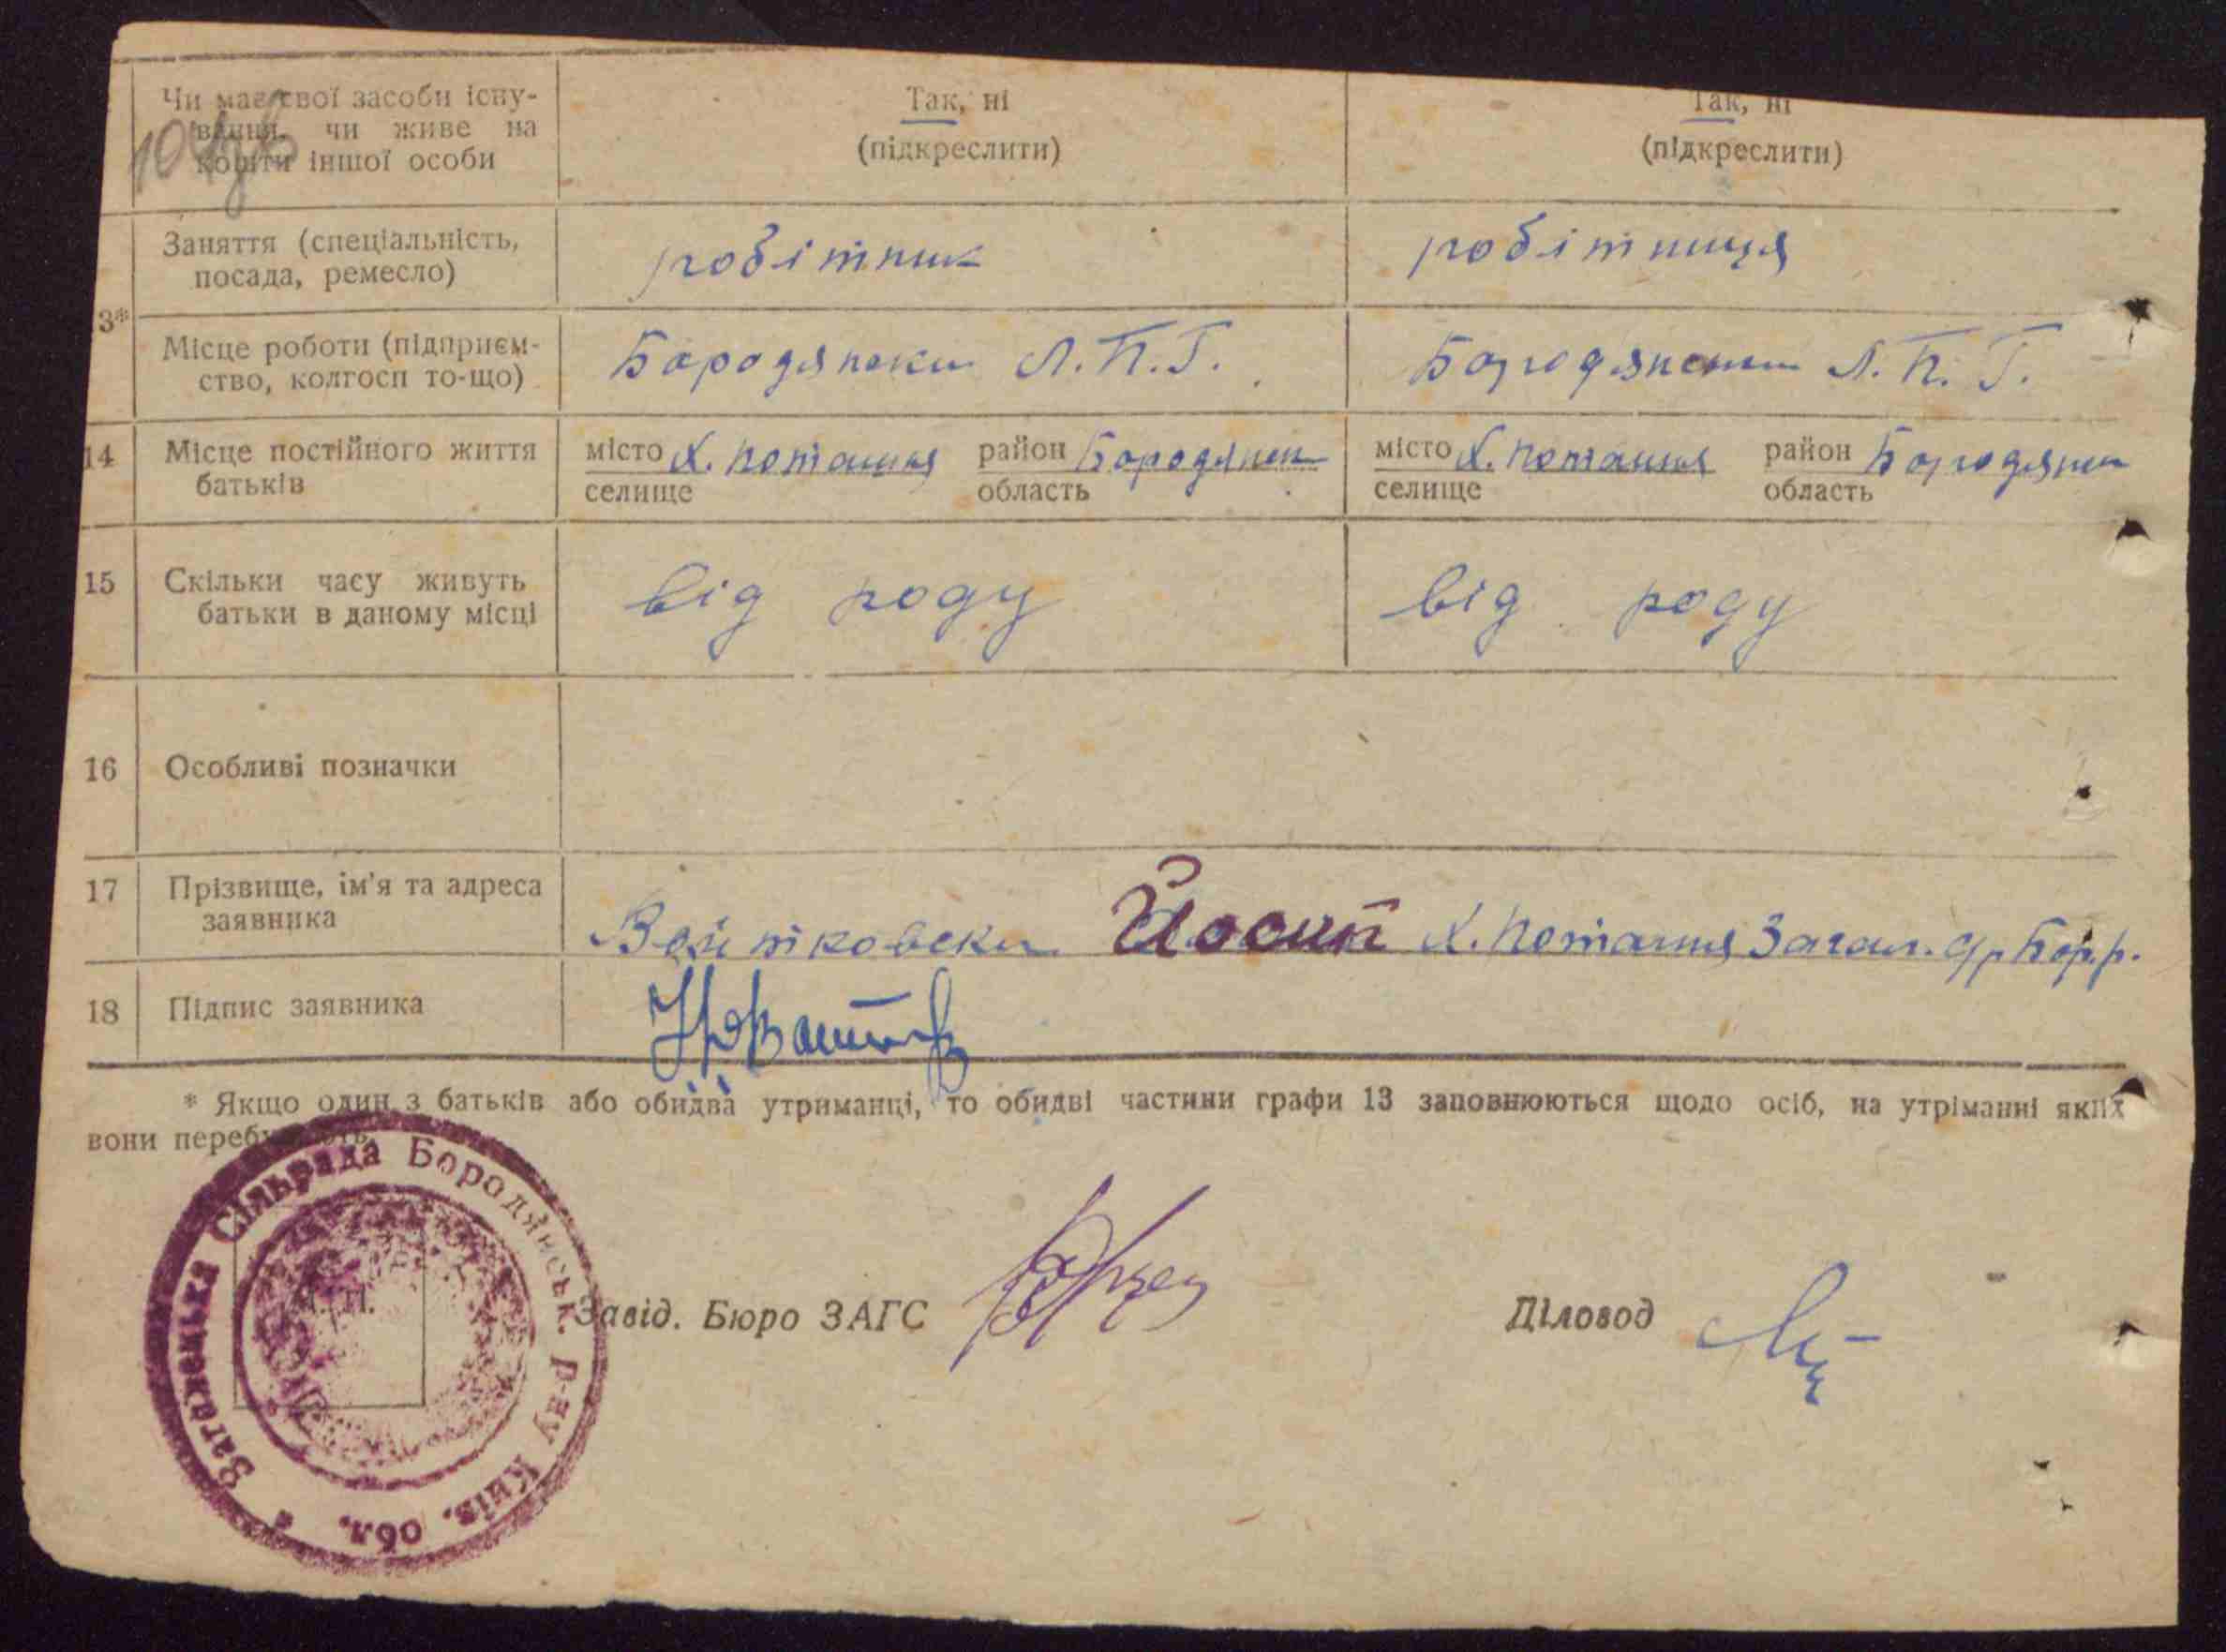 Чи має свої засоби існу-
вання, чи живе на
кошти іншої особи
Так, ні
(підкреслити)
Так, ні
(підкреслити)
3*
Заняття (спеціальність,
посада, ремесло)
робітник
робітниця
Місце роботи (підприєм-
ство, колгосп то-що)
Бородянски Л.П.Г.
Бородянски Л.П.Г.
14
Місце постійного життя
батьків
місто Х. Поташня район Бородянск
селище область
місто Х. Поташня район Бородянск
селище область
15
Скільки часу живуть
батьки в даному місці
від роду
від роду
16
Особливі позначки
17
Прізвище, ім'я та адреса
заявника
Войтковски Йосип Х. Поташня Загал. с/р Бор. р.
18
Підпис заявника
* Якщо один з батьків або обидва утриманці, то обидві частини графи 13 заповнюються щодо осіб, на утріманні яких
вони перебувають
Загальська Сільрада Бородянськ. р-ну Київ. обл.
М. П.
Завід. Бюро ЗАГС
Діловод